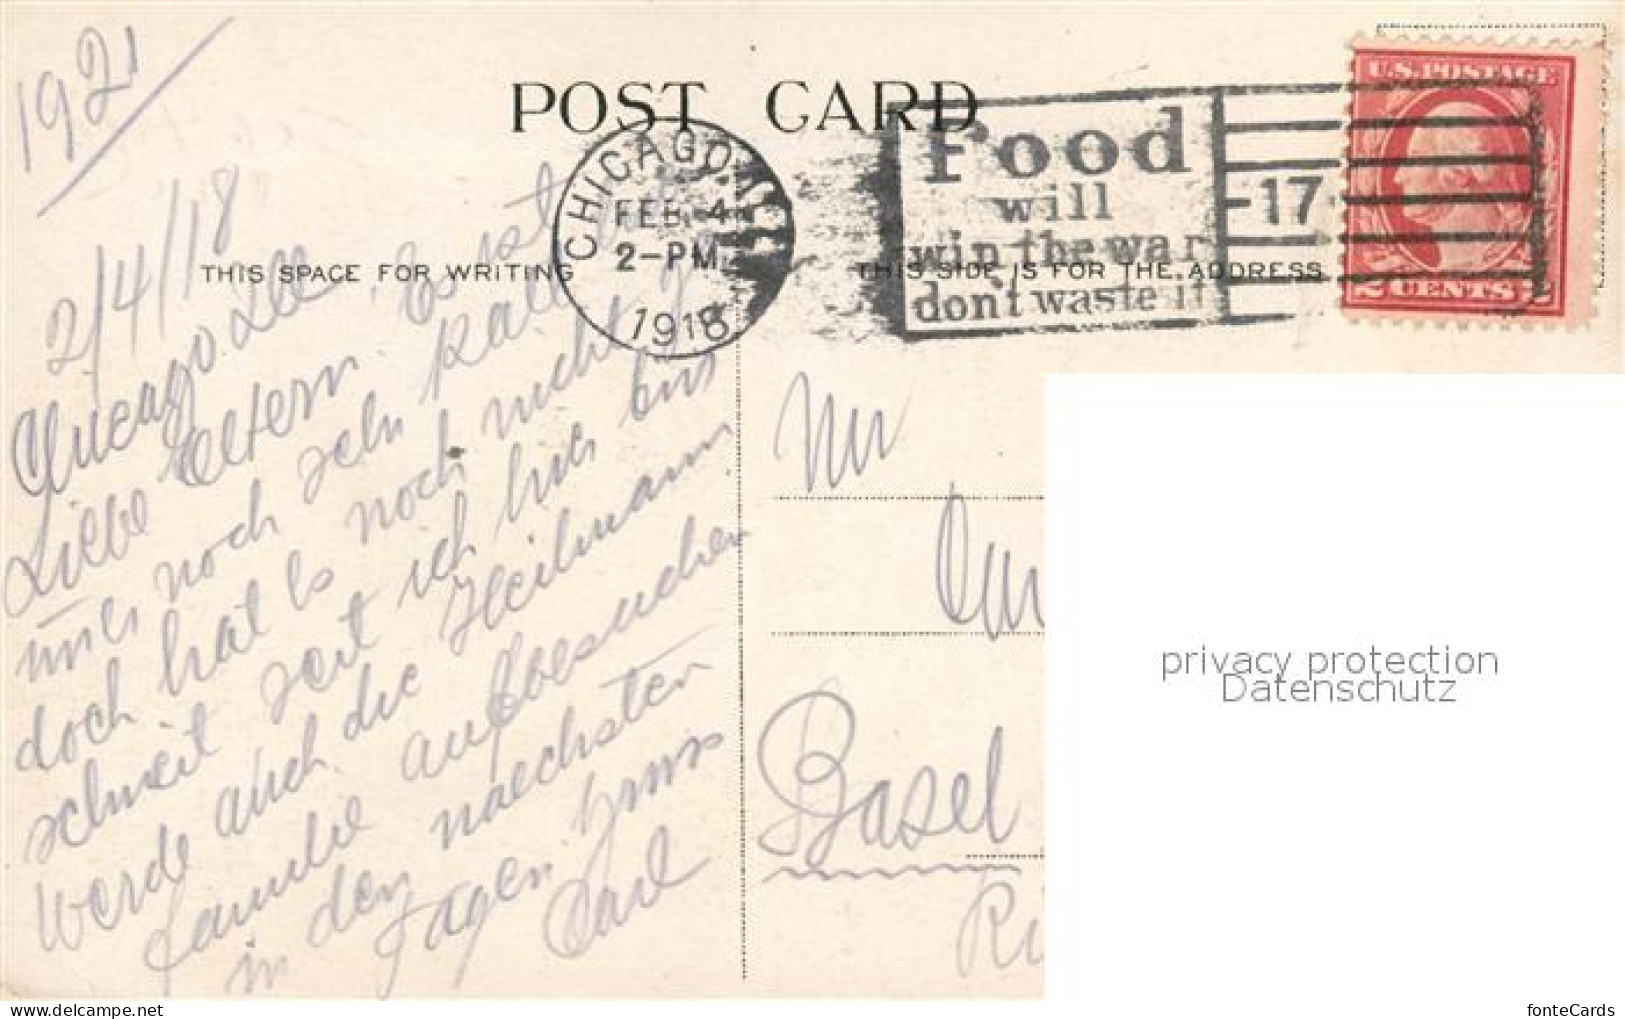 1921
POST CARD
CHICAGO, ILL.
FEB 4
2-PM
1918
Food
will
win the war
don't waste it
17
U.S. POSTAGE
2 CENTS 2
THIS SPACE FOR WRITING
THIS SIDE IS FOR THE ADDRESS
2/4/18
Chicago Ill
Liebe Eltern. Es ist
noch sehr kalt
doch hat es noch nicht
schneit seit ich hier bin
werde auch die Heilmann
familie aufbesuchen
in den naechsten
Tagen. Gruss
Carl
Mr
Basel
privacy protection
Datenschutz
fonteCards